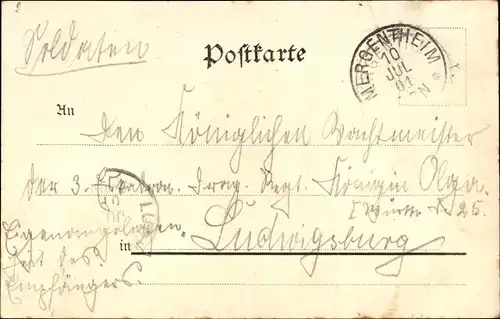 Soldaten
Postkarte
MERGENTHEIM
10
JUL
01
An
Den Königlichen Wachtmeister
der 3. Eskadron. Drag. Regt. Königin Olga.
I Württ. No 25.
Eigenangelegen-
heit des
Empfängers.
in Ludwigsburg